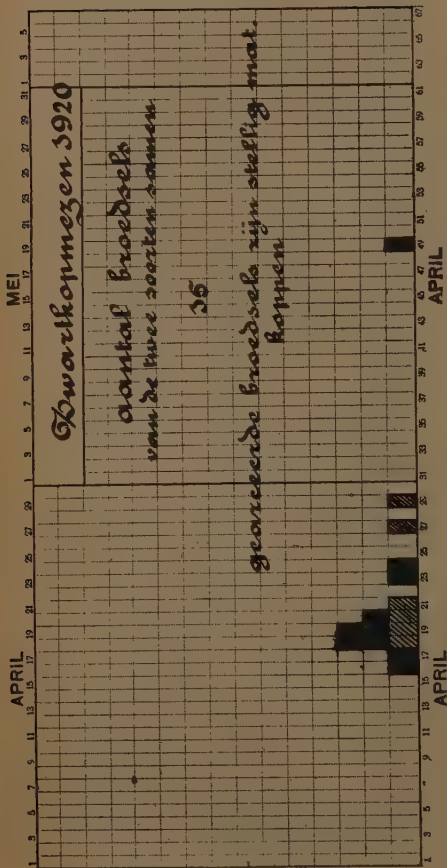 APRIL MEI
1 3 5 7 9 11 13 15 17 19 21 23 25 27 29 1 3 5 7 9 11 13 15 17 19 21 23 25 27 29 31 1 3 5
Zwartkopmezen 3920
aantal broedsels
van de twee soorten samen
35
gearceerde broedsels zijn stellig mat-
koppen
1 3 5 7 9 11 13 15 17 19 21 23 25 27 29 31 33 35 37 39 41 43 45 47 49 51 53 55 57 59 61 63 65 67
APRIL APRIL